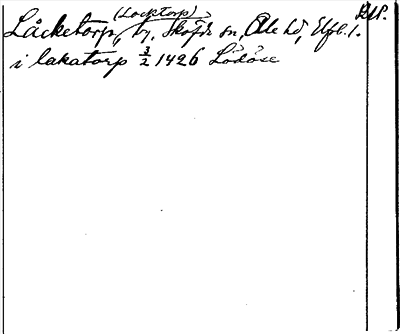 (Locktorp)
Låcketorp, by, Skepl. sn, Ale hd, Elfsb. l.
i lakatorp 3/2 1426 Lödöse